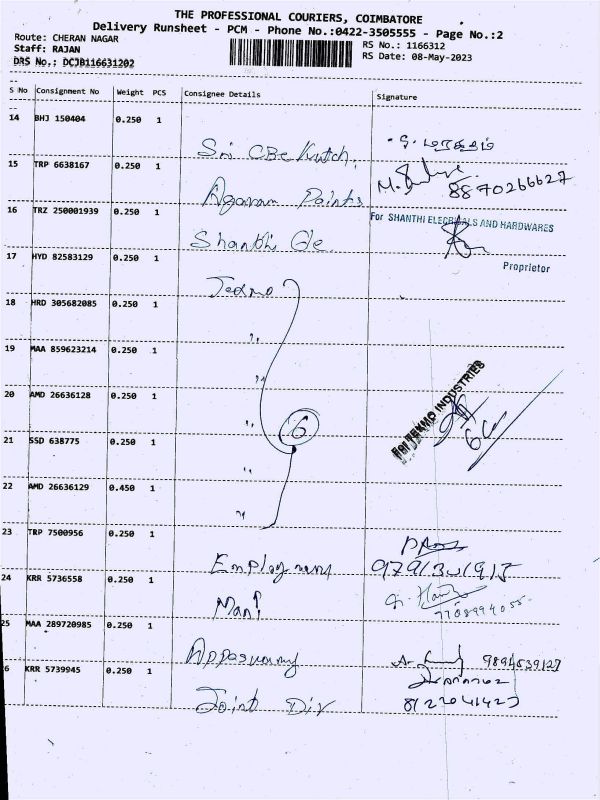 THE PROFESSIONAL COURIERS, COIMBATORE
Delivery Runsheet - PCM - Phone No.:0422-3505555 - Page No.:2
Route: CHERAN NAGAR
Staff: RAJAN
DRS No.: DCJB116631202
RS No.: 1166312
RS Date: 08-May-2023
S No Consignment No Weight PCS Consignee Details Signature
14 BHJ 150404 0.250 1
Sri CBE Kutch.
15 TRP 6638167 0.250 1
Agaram Paints M. 8870266627
16 TRZ 250001939 0.250 1
For SHANTHI ELECRICALS AND HARDWARES
Shanthi Ele
17 HYD 82583129 0.250 1
Proprietor
Tekmo
18 HRD 305682085 0.250 1
"
19 MAA 859623214 0.250 1
"
20 AMD 26636128 0.250 1
For TEKMO INDUSTRIES
" 6
21 SSD 638775 0.250 1
"
22 AMD 26636129 0.450 1
"
23 TRP 7500956 0.250 1
24 KRR 5736558 0.250 1
Mani 7708994055
25 MAA 289720985 0.250 1
Appaswamy 9894539127
6 KRR 5739945 0.250 1
Joint Div